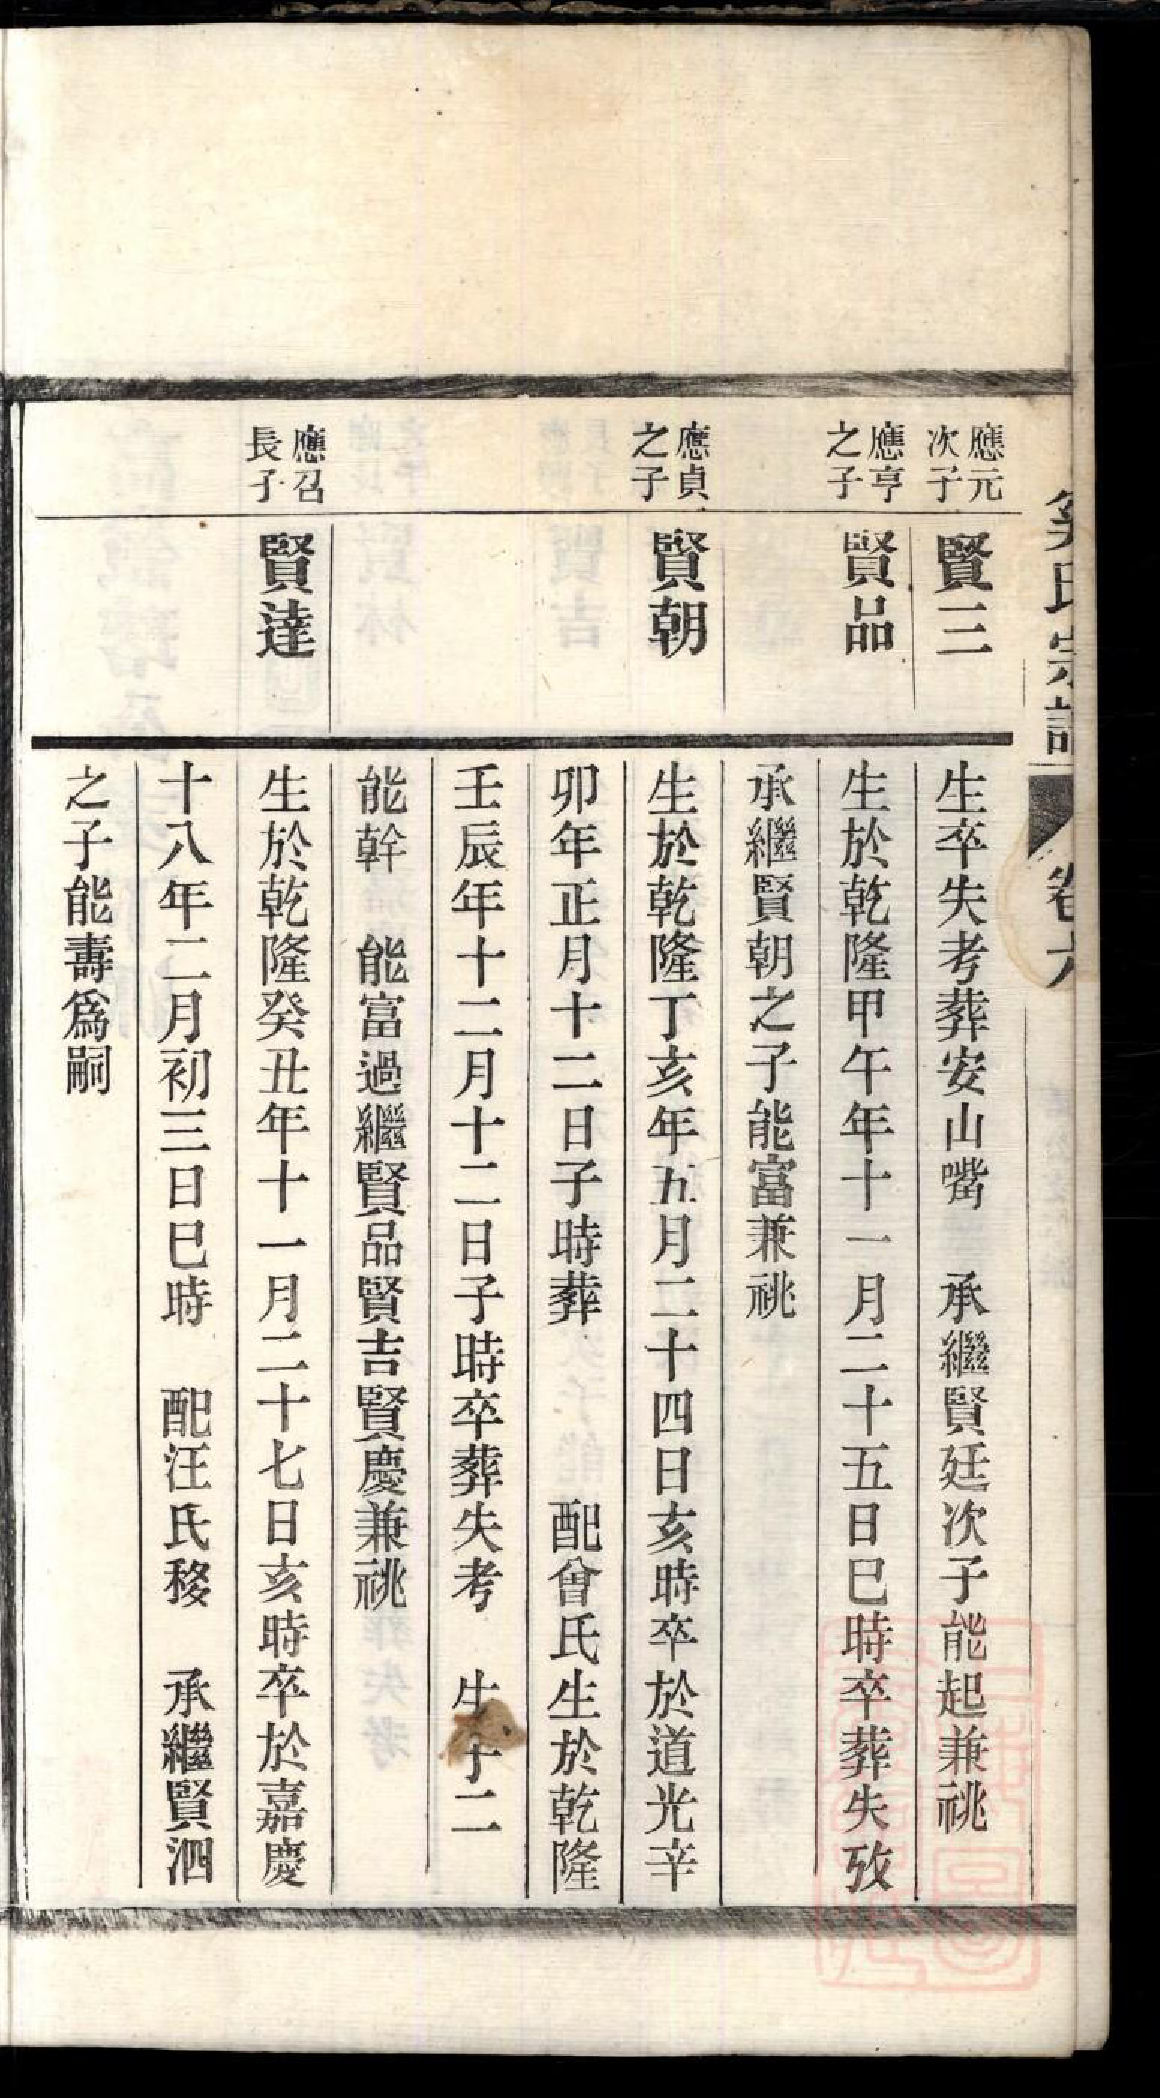 氏宗譜
卷六
應元
次子
賢三
生卒失考葬安山嘴　承繼賢廷次子能起兼祧
應亨
之子
賢品
生於乾隆甲午年十一月二十五日巳時卒葬失攷
承繼賢朝之子能富兼祧
應貞
之子
賢朝
生於乾隆丁亥年五月二十四日亥時卒於道光辛
卯年正月十二日子時葬　　　配曾氏生於乾隆
壬辰年十二月十二日子時卒葬失考　生子二
能幹　能富過繼賢品賢吉賢慶兼祧
應召
長子
賢達
生於乾隆癸丑年十一月二十七日亥時卒於嘉慶
十八年二月初三日巳時　配汪氏移　承繼賢泗
之子能壽爲嗣